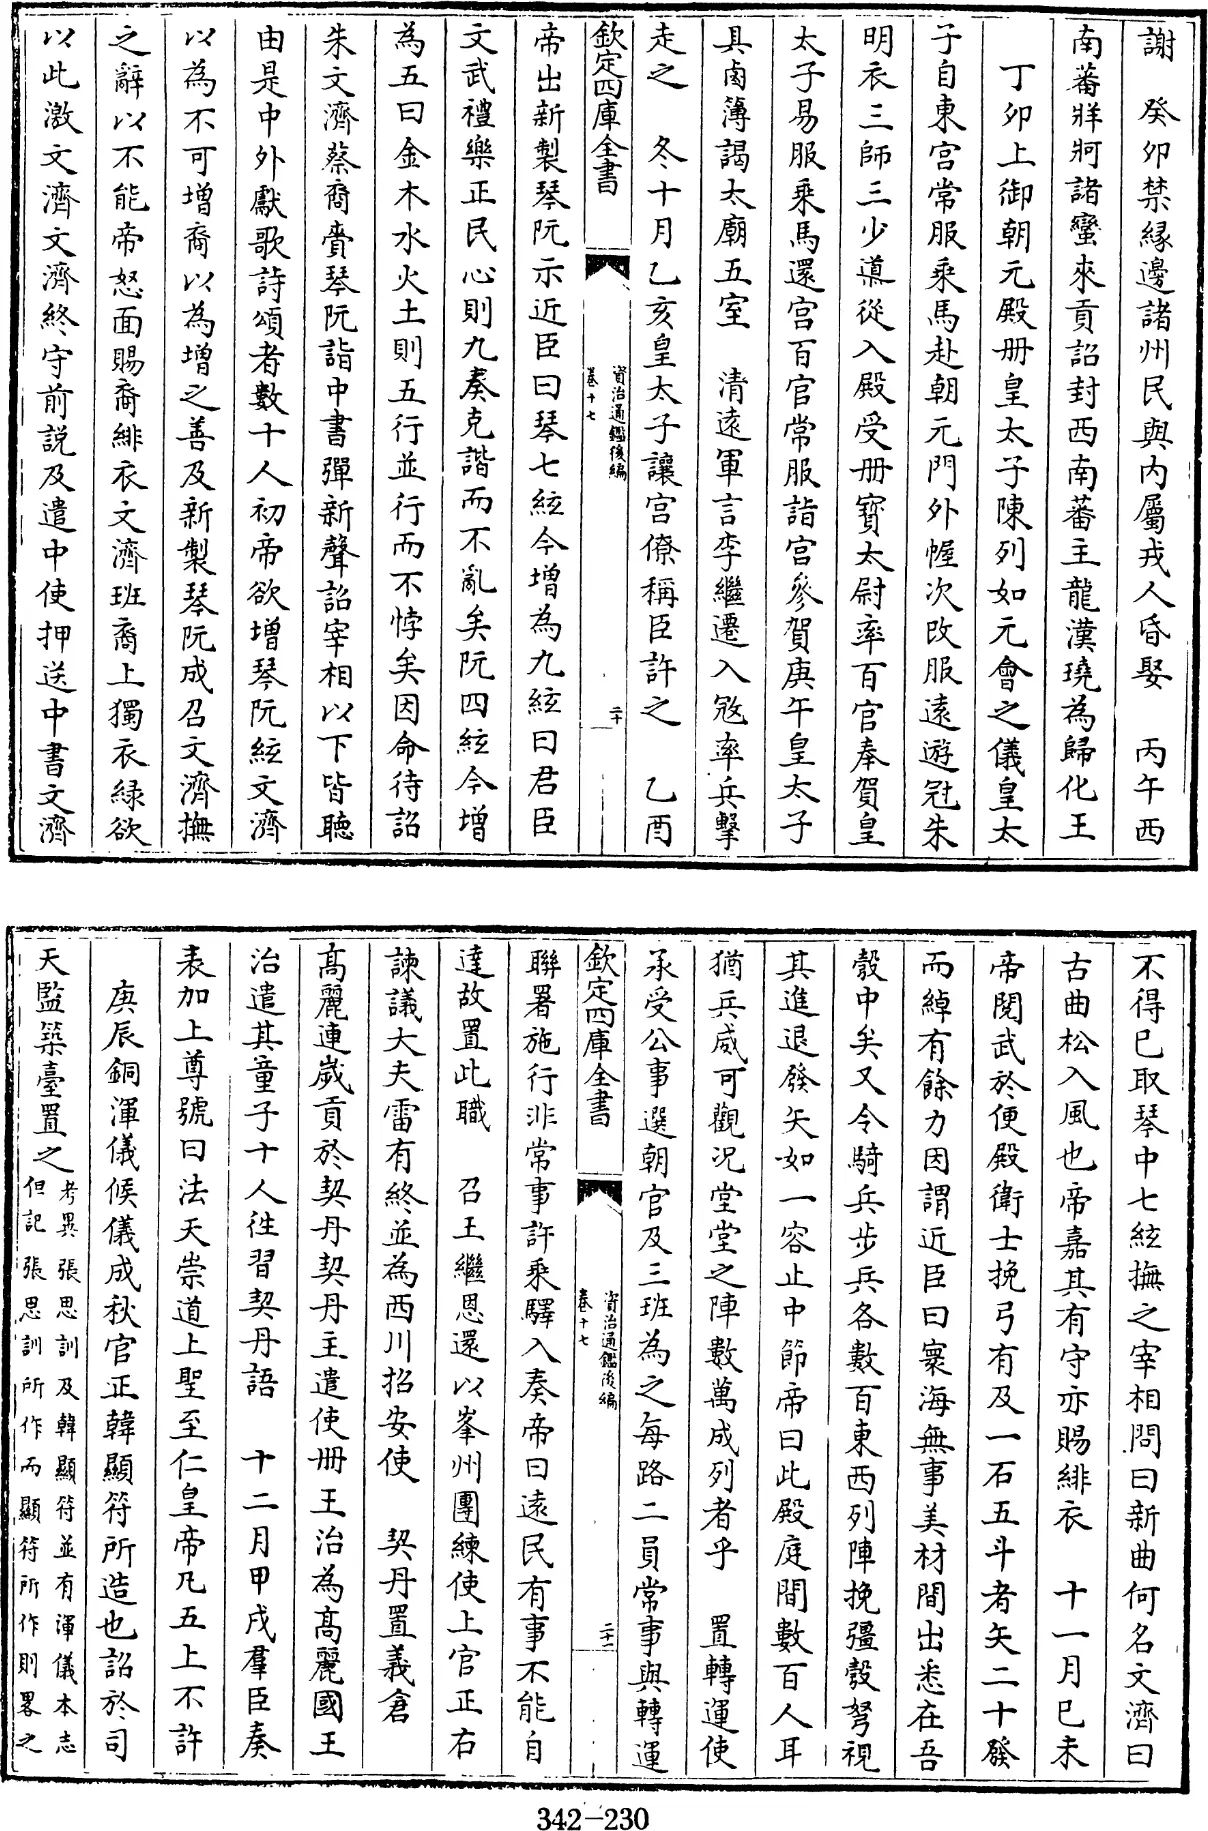 謝　癸卯禁緣邊諸州民與內屬戎人昏娶　丙午西
南蕃牂牁諸蠻來貢詔封西南蕃主龍漢璄為歸化王
丁卯上御朝元殿冊皇太子陳列如元會之儀皇太
子自東宮常服乘馬赴朝元門外幄次改服遠遊冠朱
明衣三師三少導從入殿受冊寶太尉率百官奉賀皇
太子易服乘馬還宮百官常服詣宮參賀庚午皇太子
具鹵簿謁太廟五室　清遠軍言李繼遷入㓂率兵擊
走之　冬十月乙亥皇太子讓宮僚稱臣許之　乙酉
欽定四庫全書
資治通鑑後編
卷十七
二十
帝出新製琴阮示近臣曰琴七絃今增為九絃曰君臣
文武禮樂正民心則九奏克諧而不亂矣阮四絃今增
為五曰金木水火土則五行並行而不悖矣因命待詔
朱文濟蔡裔賫琴阮詣中書彈新聲詔宰相以下皆聽
由是中外獻歌詩頌者數十人初帝欲增琴阮絃文濟
以為不可增裔以為增之善及新製琴阮成召文濟撫
之辭以不能帝怒面賜裔緋衣文濟班裔上獨衣綠欲
以此激文濟文濟終守前説及遣中使押送中書文濟
不得已取琴中七絃撫之宰相問曰新曲何名文濟曰
古曲松入風也帝嘉其有守亦賜緋衣　十一月已未
帝閱武於便殿衛士挽弓有及一石五斗者矢二十發
而綽有餘力因謂近臣曰寰海無事美材間出悉在吾
彀中矣又令騎兵步兵各數百東西列陣挽彊彀弩視
其進退發矢如一容止中節帝曰此殿庭間數百人耳
猶兵威可觀況堂堂之陣數萬成列者乎　置轉運使
承受公事選朝官及三班為之每路二員常事與轉運
欽定四庫全書
資治通鑑後編
卷十七
二十一
聯署施行非常事許乘驛入奏帝曰遠民有事不能自
達故置此職　召王繼恩還以峯州團練使上官正右
諫議大夫雷有終並為西川招安使　契丹置義倉
高麗連歲貢於契丹契丹主遣使冊王治為高麗國王
治遣其童子十人徃習契丹語　十二月甲戌羣臣奏
表加上尊號曰法天崇道上聖至仁皇帝凡五上不許
庚辰銅渾儀候儀成秋官正韓顯符所造也詔於司
天監築臺置之考異張思訓及韓顯符並有渾儀本志
但記張思訓所作而顯符所作則畧之
342-230